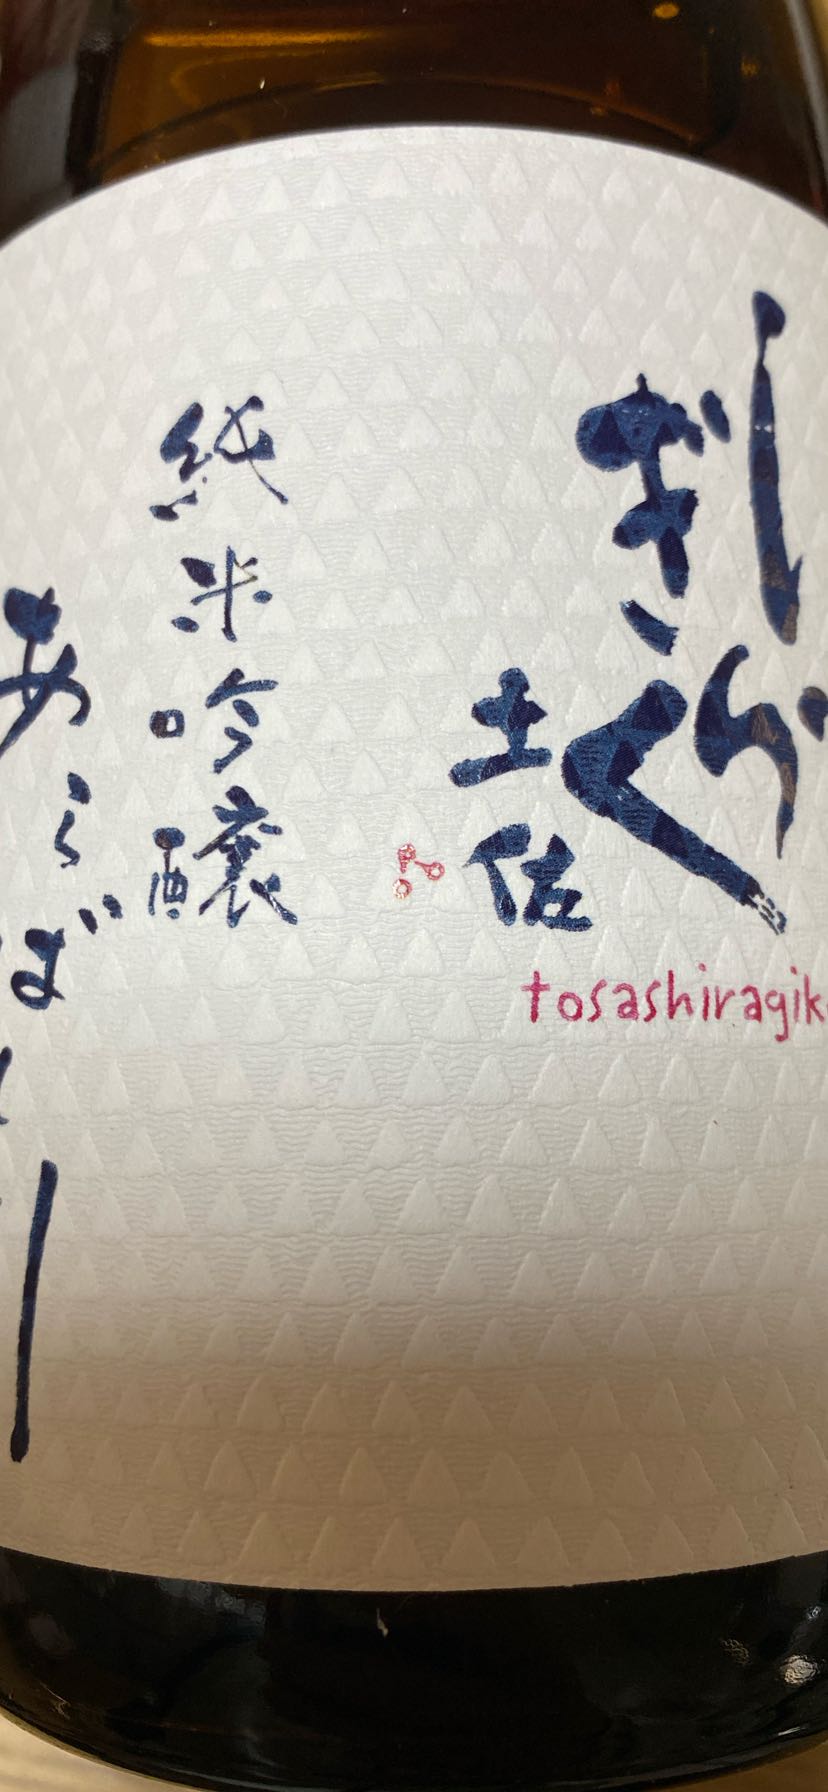 しらぎく
土佐
tosashiragik
純米吟醸
あらばしり